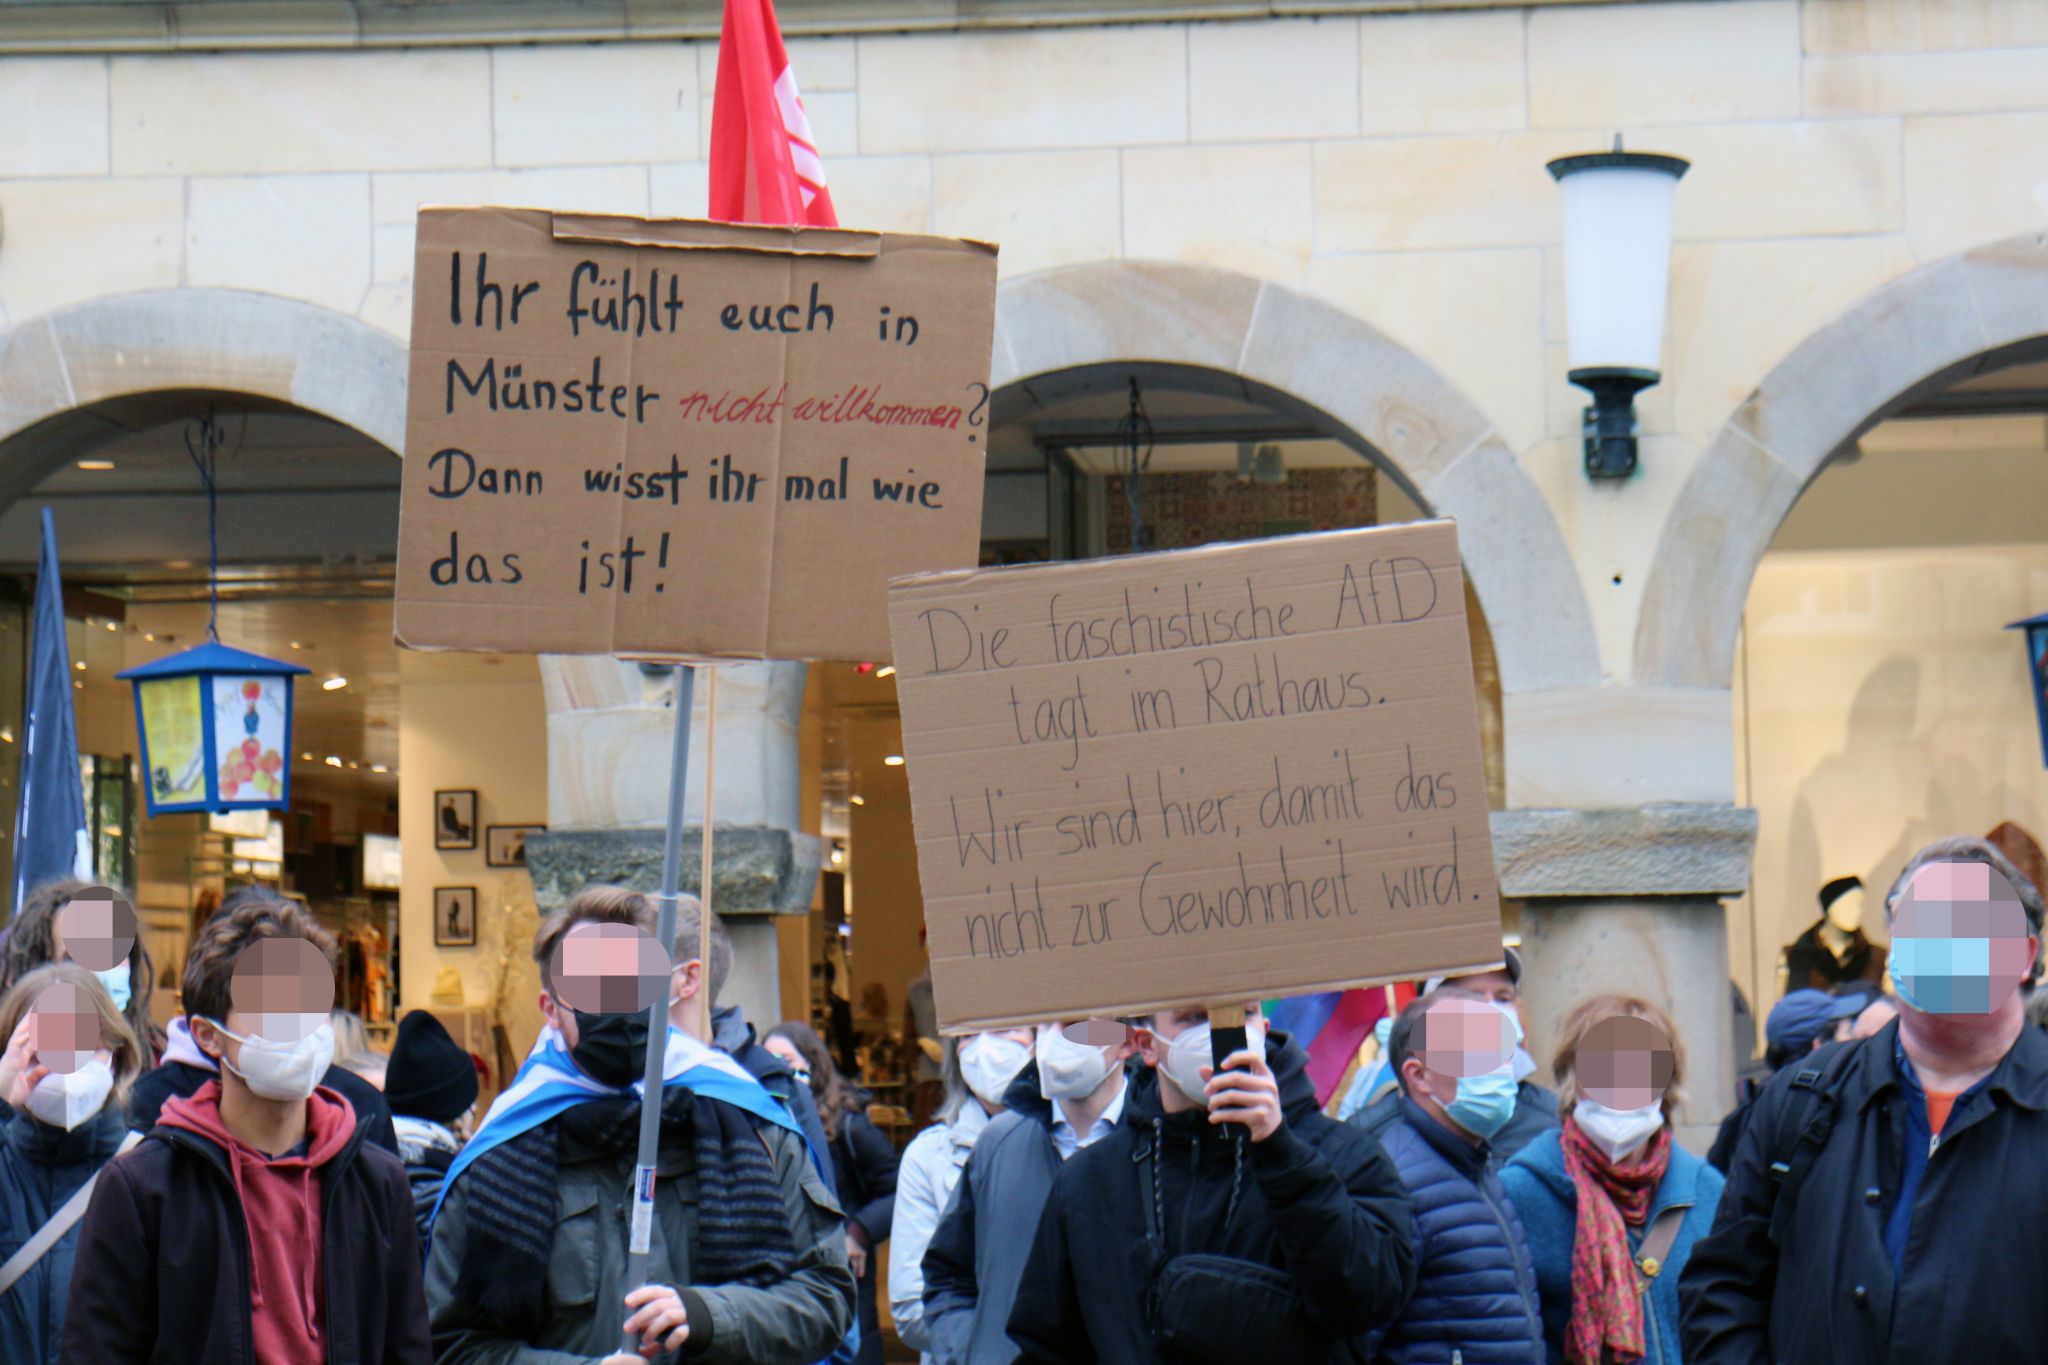 Ihr fühlt euch in
Münster nicht willkommen?
Dann wisst ihr mal wie
das ist!
Die faschistische AfD
tagt im Rathaus.
Wir sind hier, damit das
nicht zur Gewohnheit wird.